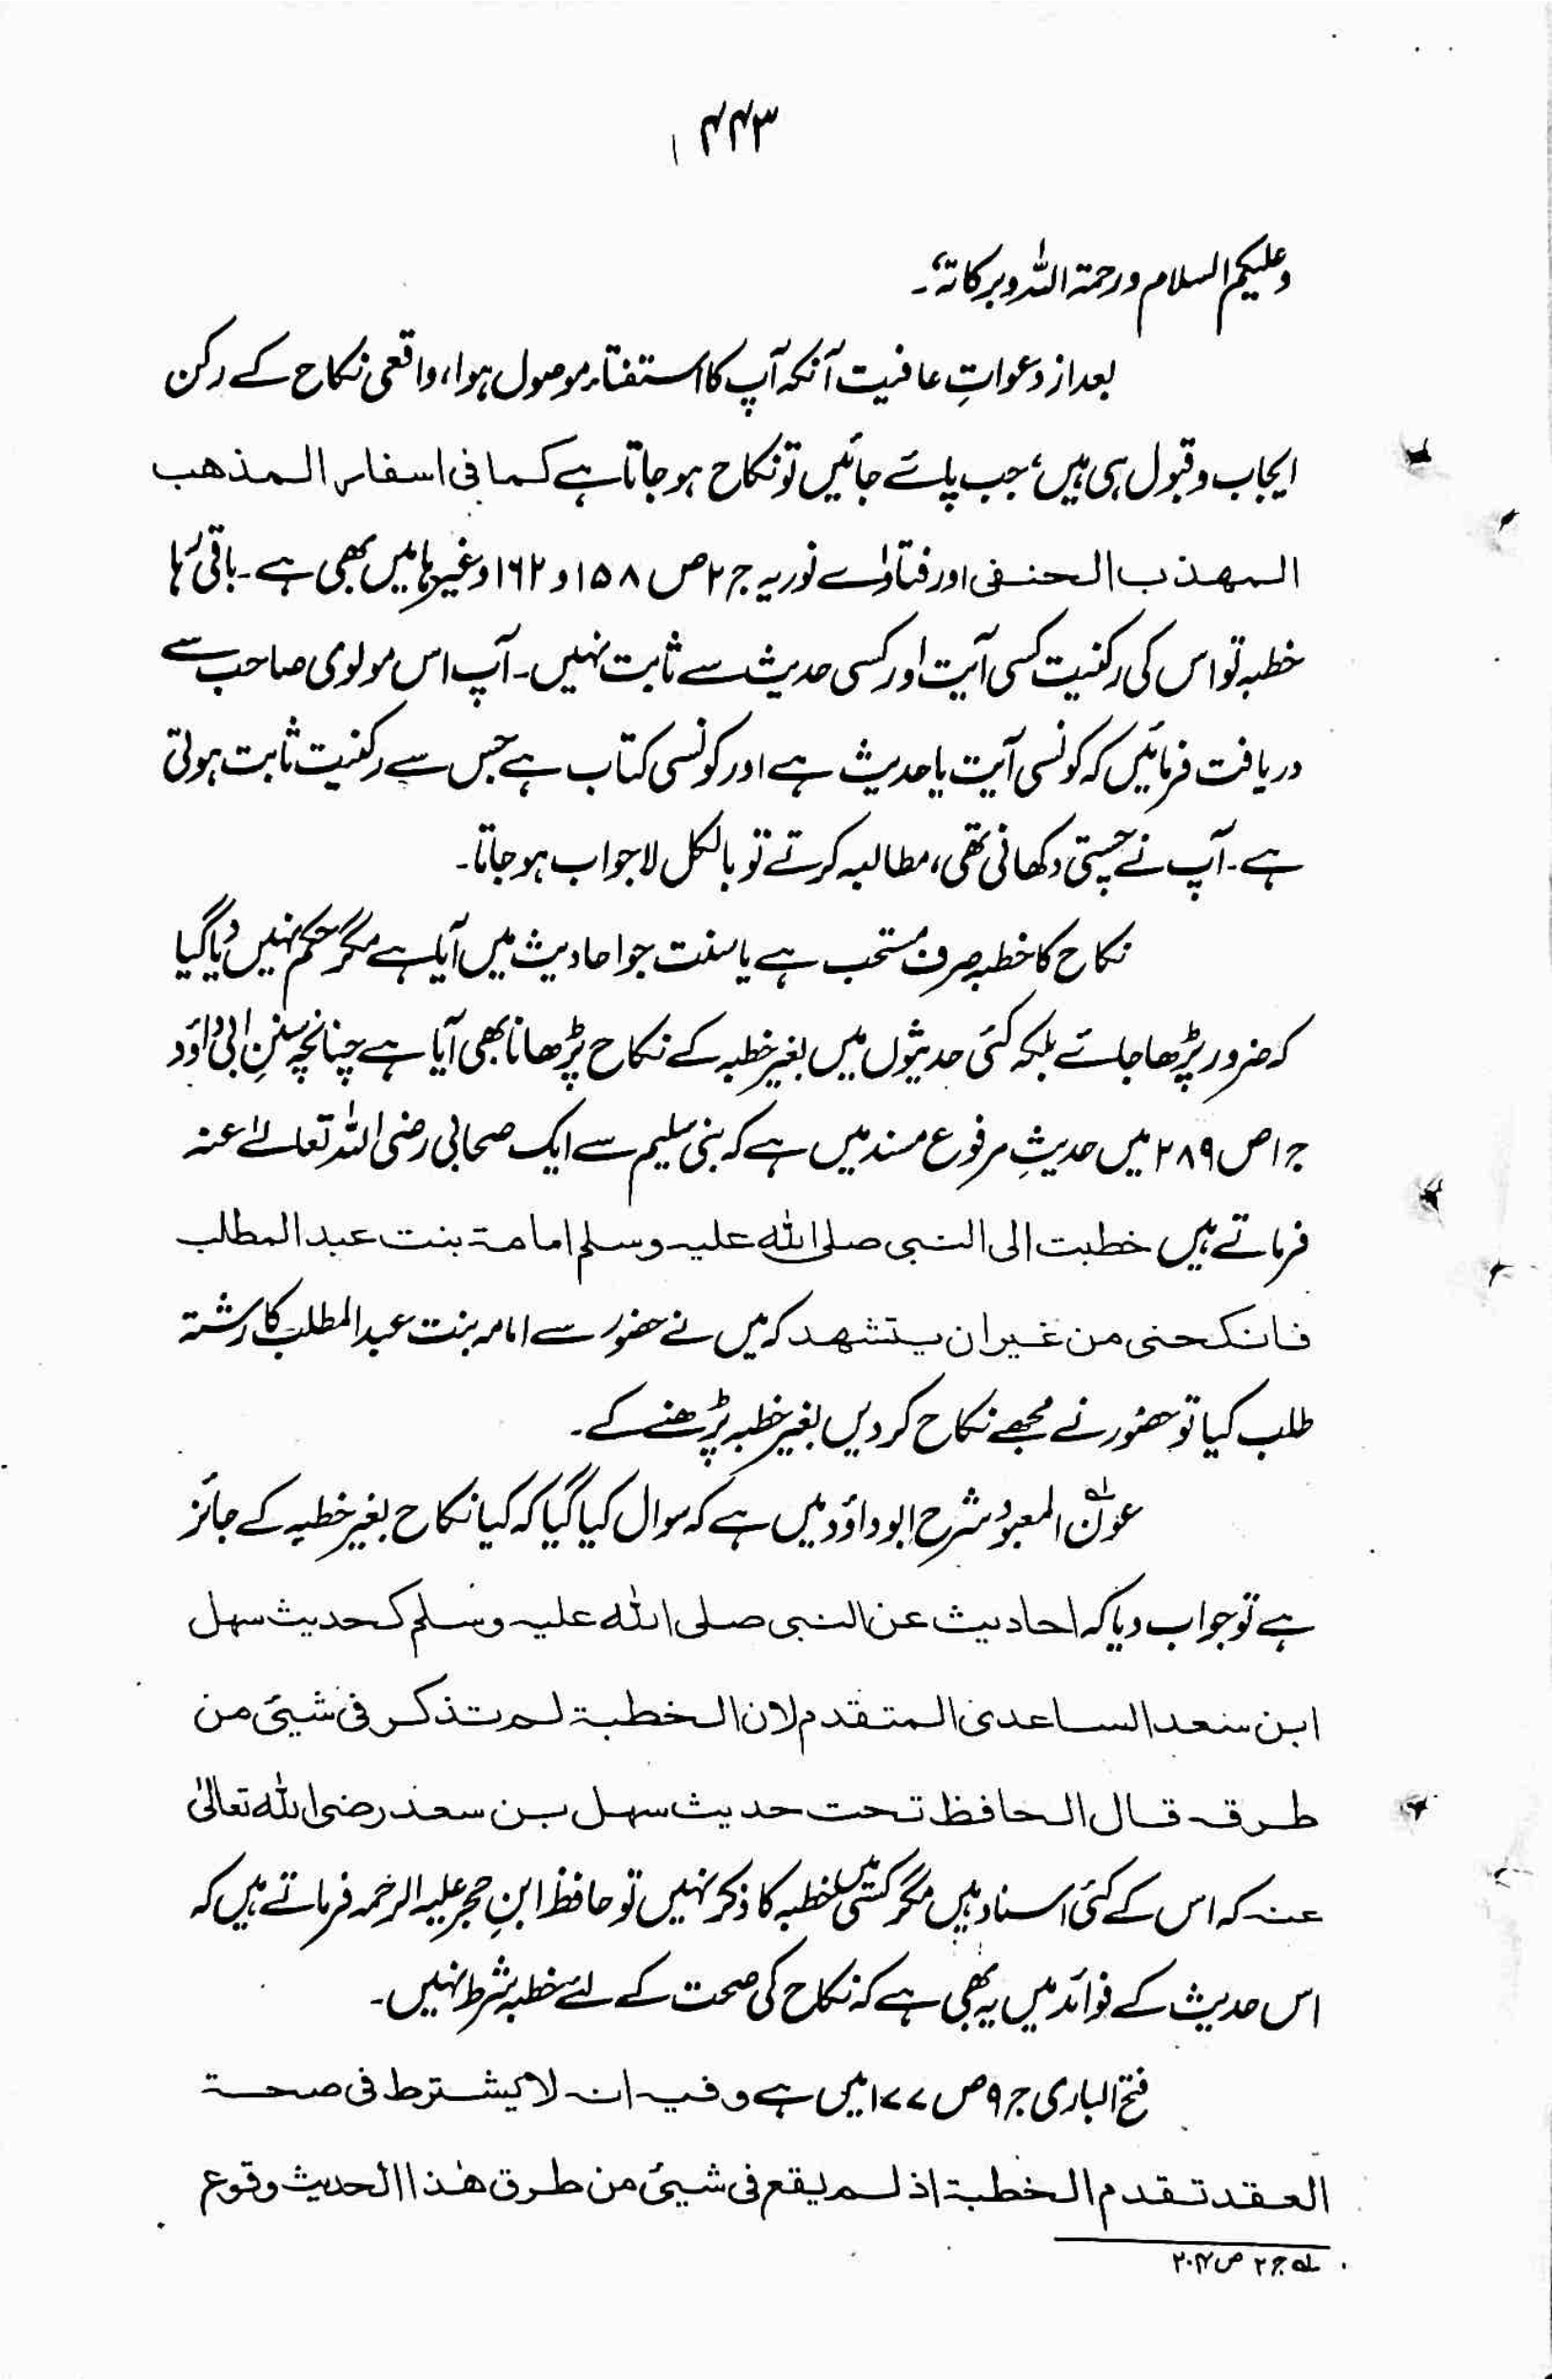 ۴۴۳
وعلیکم السلام ورحمۃ اللہ وبرکاتہ،۔
بعد از دعواتِ عافیت آنکہ آپ کا استفتاء موصول ہوا، واقعی نکاح کے رکن
ایجاب وقبول ہی ہیں، جب پائے جائیں تو نکاح ہو جاتا ہے کما فی اسفار المذھب
المھذب الحنفی اور فتاوٰے نوریہ ج ۲ ص ۱۵۸ و ۱۶۲ وغیرہا میں بھی ہے۔ باقی رہا
خطبہ تو اس کی رکنیت کسی آیت اور کسی حدیث سے ثابت نہیں۔ آپ اس مولوی صاحب سے
دریافت فرمائیں کہ کونسی آیت یا حدیث ہے اور کونسی کتاب ہے جس سے رکنیت ثابت ہوتی
ہے۔ آپ نے چستی دکھانی تھی، مطالبہ کرتے تو بالکل لاجواب ہو جاتا۔
نکاح کا خطبہ صرف مستحب ہے یا سنت جو احادیث میں آیا ہے مگر حکم نہیں دیا گیا
کہ ضرور پڑھا جائے بلکہ کئی حدیثوں میں بغیر خطبہ کے نکاح پڑھانا بھی آیا ہے چنانچہ سنن ابی داؤد
ج ۱ ص ۲۸۹ میں حدیثِ مرفوع مسند میں ہے کہ بنی سلیم سے ایک صحابی رضی اللہ تعالےٰ عنہ
فرماتے ہیں خطبت الی النبی صلی اللہ علیہ وسلم امامۃ بنت عبد المطلب
فانکحنی من غیر ان یتشھد کہ میں نے حضور سے امامہ بنت عبد المطلب کا رشتہ
طلب کیا تو حضور نے مجھے نکاح کر دیں بغیر خطبہ پڑھنے کے۔
عون المعبود ؎۱ شرح ابو داؤد میں ہے کہ سوال کیا گیا کہ کیا نکاح بغیر خطبہ کے جائز
ہے تو جواب دیا کہ احادیث عن النبی صلی اللہ علیہ وسلم کحدیث سھل
ابن سعد الساعدی المتقدم لان الخطبۃ لم تذکر فی شیئ من
طرقہ قال الحافظ تحت حدیث سھل بن سعد رضی اللہ تعالیٰ
عنہ کہ اس کے کئی اسناد ہیں مگر کسی میں خطبہ کا ذکر نہیں تو حافظ ابنِ حجر علیہ الرحمہ فرماتے ہیں کہ
اس حدیث کے فوائد میں یہ بھی ہے کہ نکاح کی صحت کے لئے خطبہ شرط نہیں۔
فتح الباری ج ۹ ص ۱۷۷ میں ہے و فیہ انہ لا یشترط فی صحۃ
العقد تقدم الخطبۃ اذ لم یقع فی شیئ من طرق ھٰذا الحدیث وقوع
؎۱ ج ۲ ص ۲۰۴